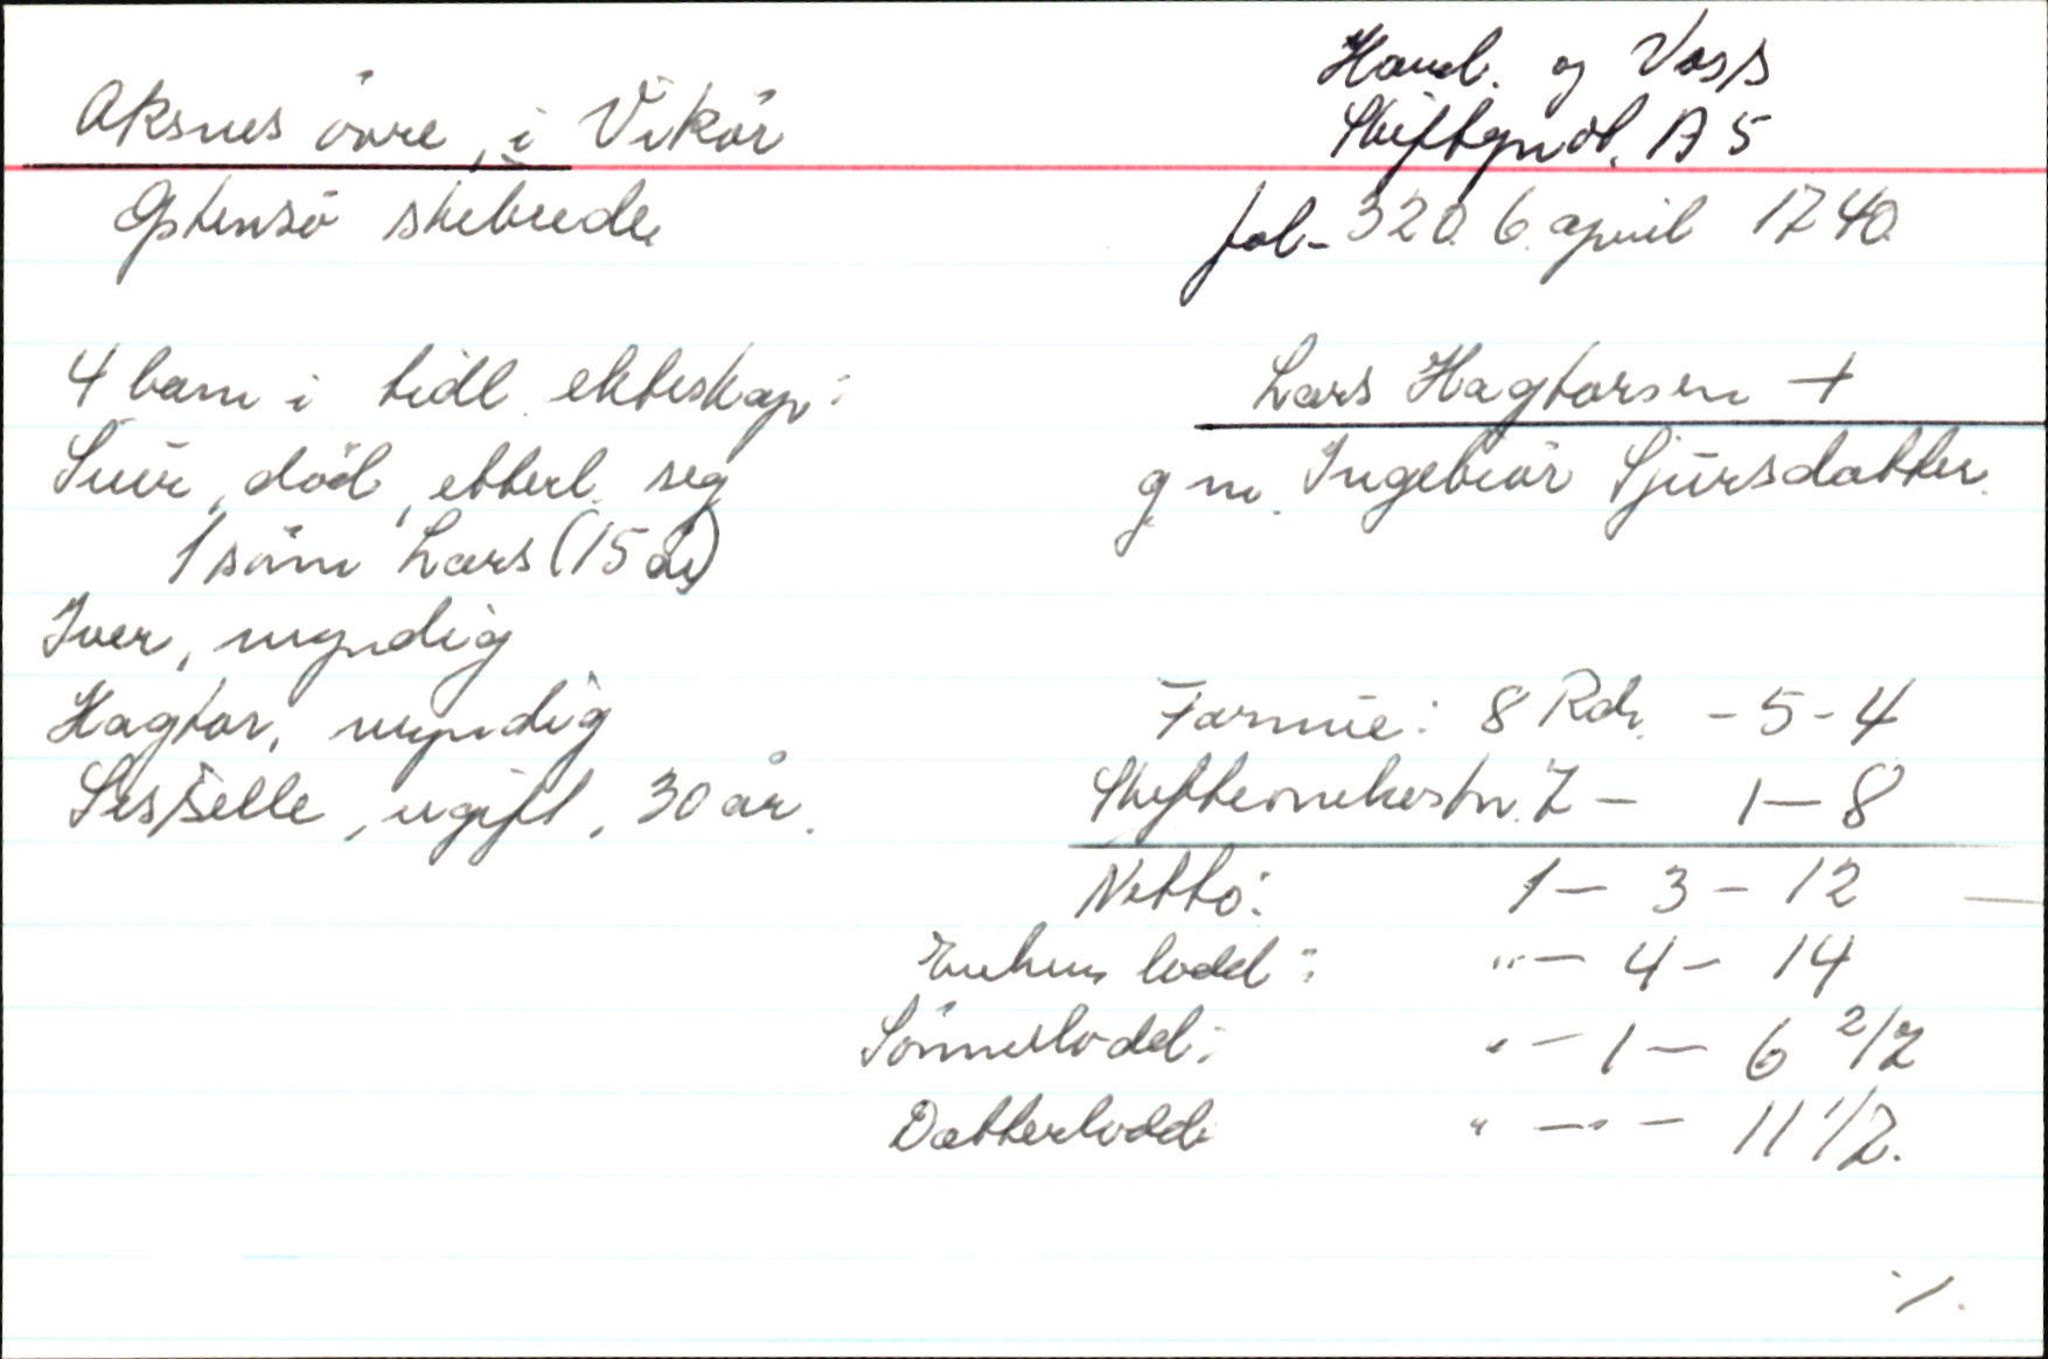 Aksnes övre, i Vikör
Hard. og Voss
Skifteprot. A 5
Östensö skibrede
fol. 320. 6. april 1740.
4 barn i tidl. ekteskap:
Lars Hagtorsen +
Siur, död, etterl. seg
g. m. Ingebiör Sjursdatter.
1 sönn Lars (15 år)
Iver, myndig
Hagtor, myndig
Formue: 8 Rdr. - 5 - 4
Sisselle, ugift, 30 år.
Skifteomkostn. 7 - 1 - 8
Netto: 1 - 3 - 12
Enkens lodd: " - 4 - 14
Sönnelodd: " - 1 - 6 2/7
Datterlodd " - " - 11 1/7.